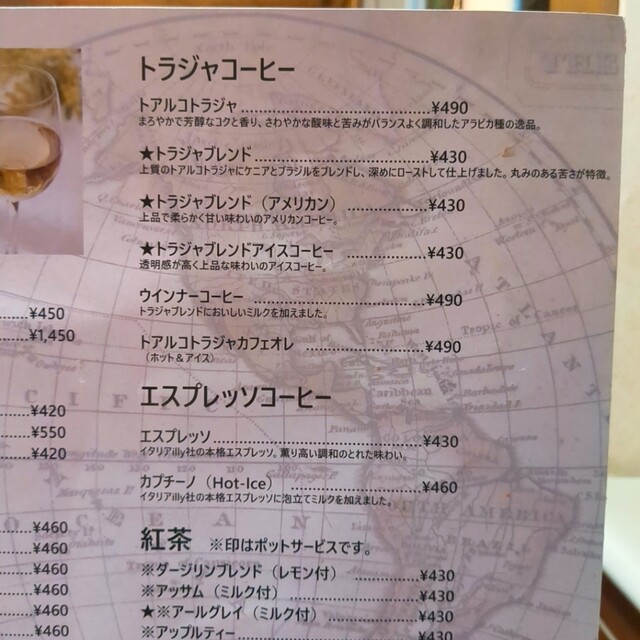 トラジャコーヒー
トアルコトラジャ……………………………¥490
まろやかで芳醇なコクと香り、さわやかな酸味と苦みがバランスよく調和したアラビカ種の逸品。
★トラジャブレンド…………………………¥430
上質のトアルコトラジャにケニアとブラジルをブレンドし、深めにローストして仕上げました。丸みのある苦さが特徴。
★トラジャブレンド（アメリカン）……………¥430
上品で柔らかく甘い味わいのアメリカンコーヒー。
★トラジャブレンドアイスコーヒー ……………¥430
透明感が高く上品な味わいのアイスコーヒー。
ウインナーコーヒー ……………………………¥490
トラジャブレンドにおいしいミルクを加えました。
トアルコトラジャカフェオレ ……………………¥490
（ホット＆アイス）
エスプレッソコーヒー
エスプレッソ……………………………………¥430
イタリアilly社の本格エスプレッソ。薫り高い調和のとれた味わい。
カプチーノ（Hot-Ice） ………………………¥460
イタリアilly社の本格エスプレッソに泡立てミルクを加えました。
紅茶 ※印はポットサービスです。
※ダージリンブレンド（レモン付）……………¥430
※アッサム（ミルク付）………………………¥430
★※アールグレイ（ミルク付）…………………¥430
※アップルティー………………………………¥430
……¥450
……¥1,450
……¥420
……¥550
……¥420
……¥460
……¥460
……¥460
……¥460
……¥460
……¥460
PACIFIC
OCEAN
Tropic of Cancer
Caribbean
SOUTH AMERICA
BRAZIL